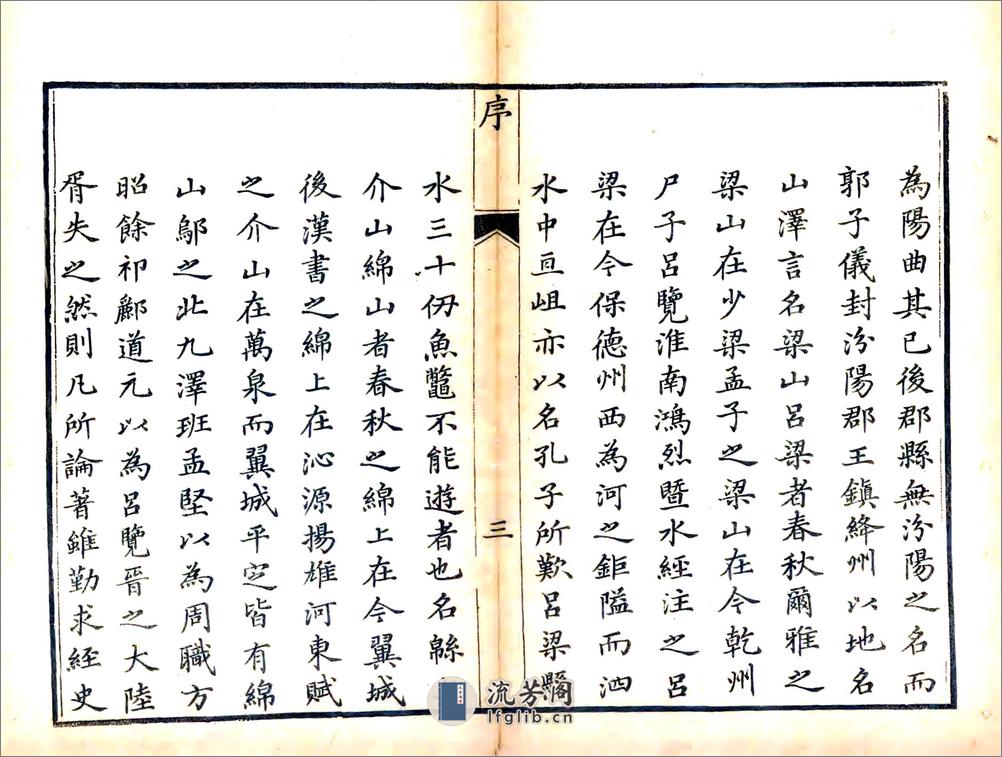 為陽曲其已後郡縣無汾陽之名而
郭子儀封汾陽郡王鎮絳州以地名
山澤言名梁山呂梁者春秋爾雅之
梁山在少梁孟子之梁山在今乾州
尸子呂覽淮南鴻烈暨水經注之呂
梁在今保德州西為河之鉅隘而泗
水中亘岨亦以名孔子所歎呂梁縣
序
三
水三十仞魚鼈不能遊者也名緜
介山綿山者春秋之綿上在今翼城
後漢書之綿上在沁源揚雄河東賦
之介山在萬泉而翼城平定皆有綿
山鄔之北九澤班孟堅以為周職方
昭餘祁酈道元以為呂覽晉之大陸
胥失之然則凡所論著雖勤求經史
流芳阁
lfglib.cn